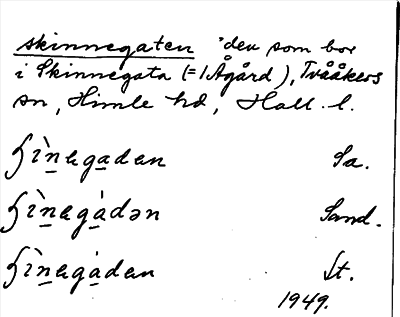 skinnegaten "den som bor
i Skinnegata (=1 Ågård), Tvååkers
sn, Himle hd, Hall. l.
ʃìnagadan Sa.
ʃìnagàdən Sand.
ʃìnagàdan St.
1949.